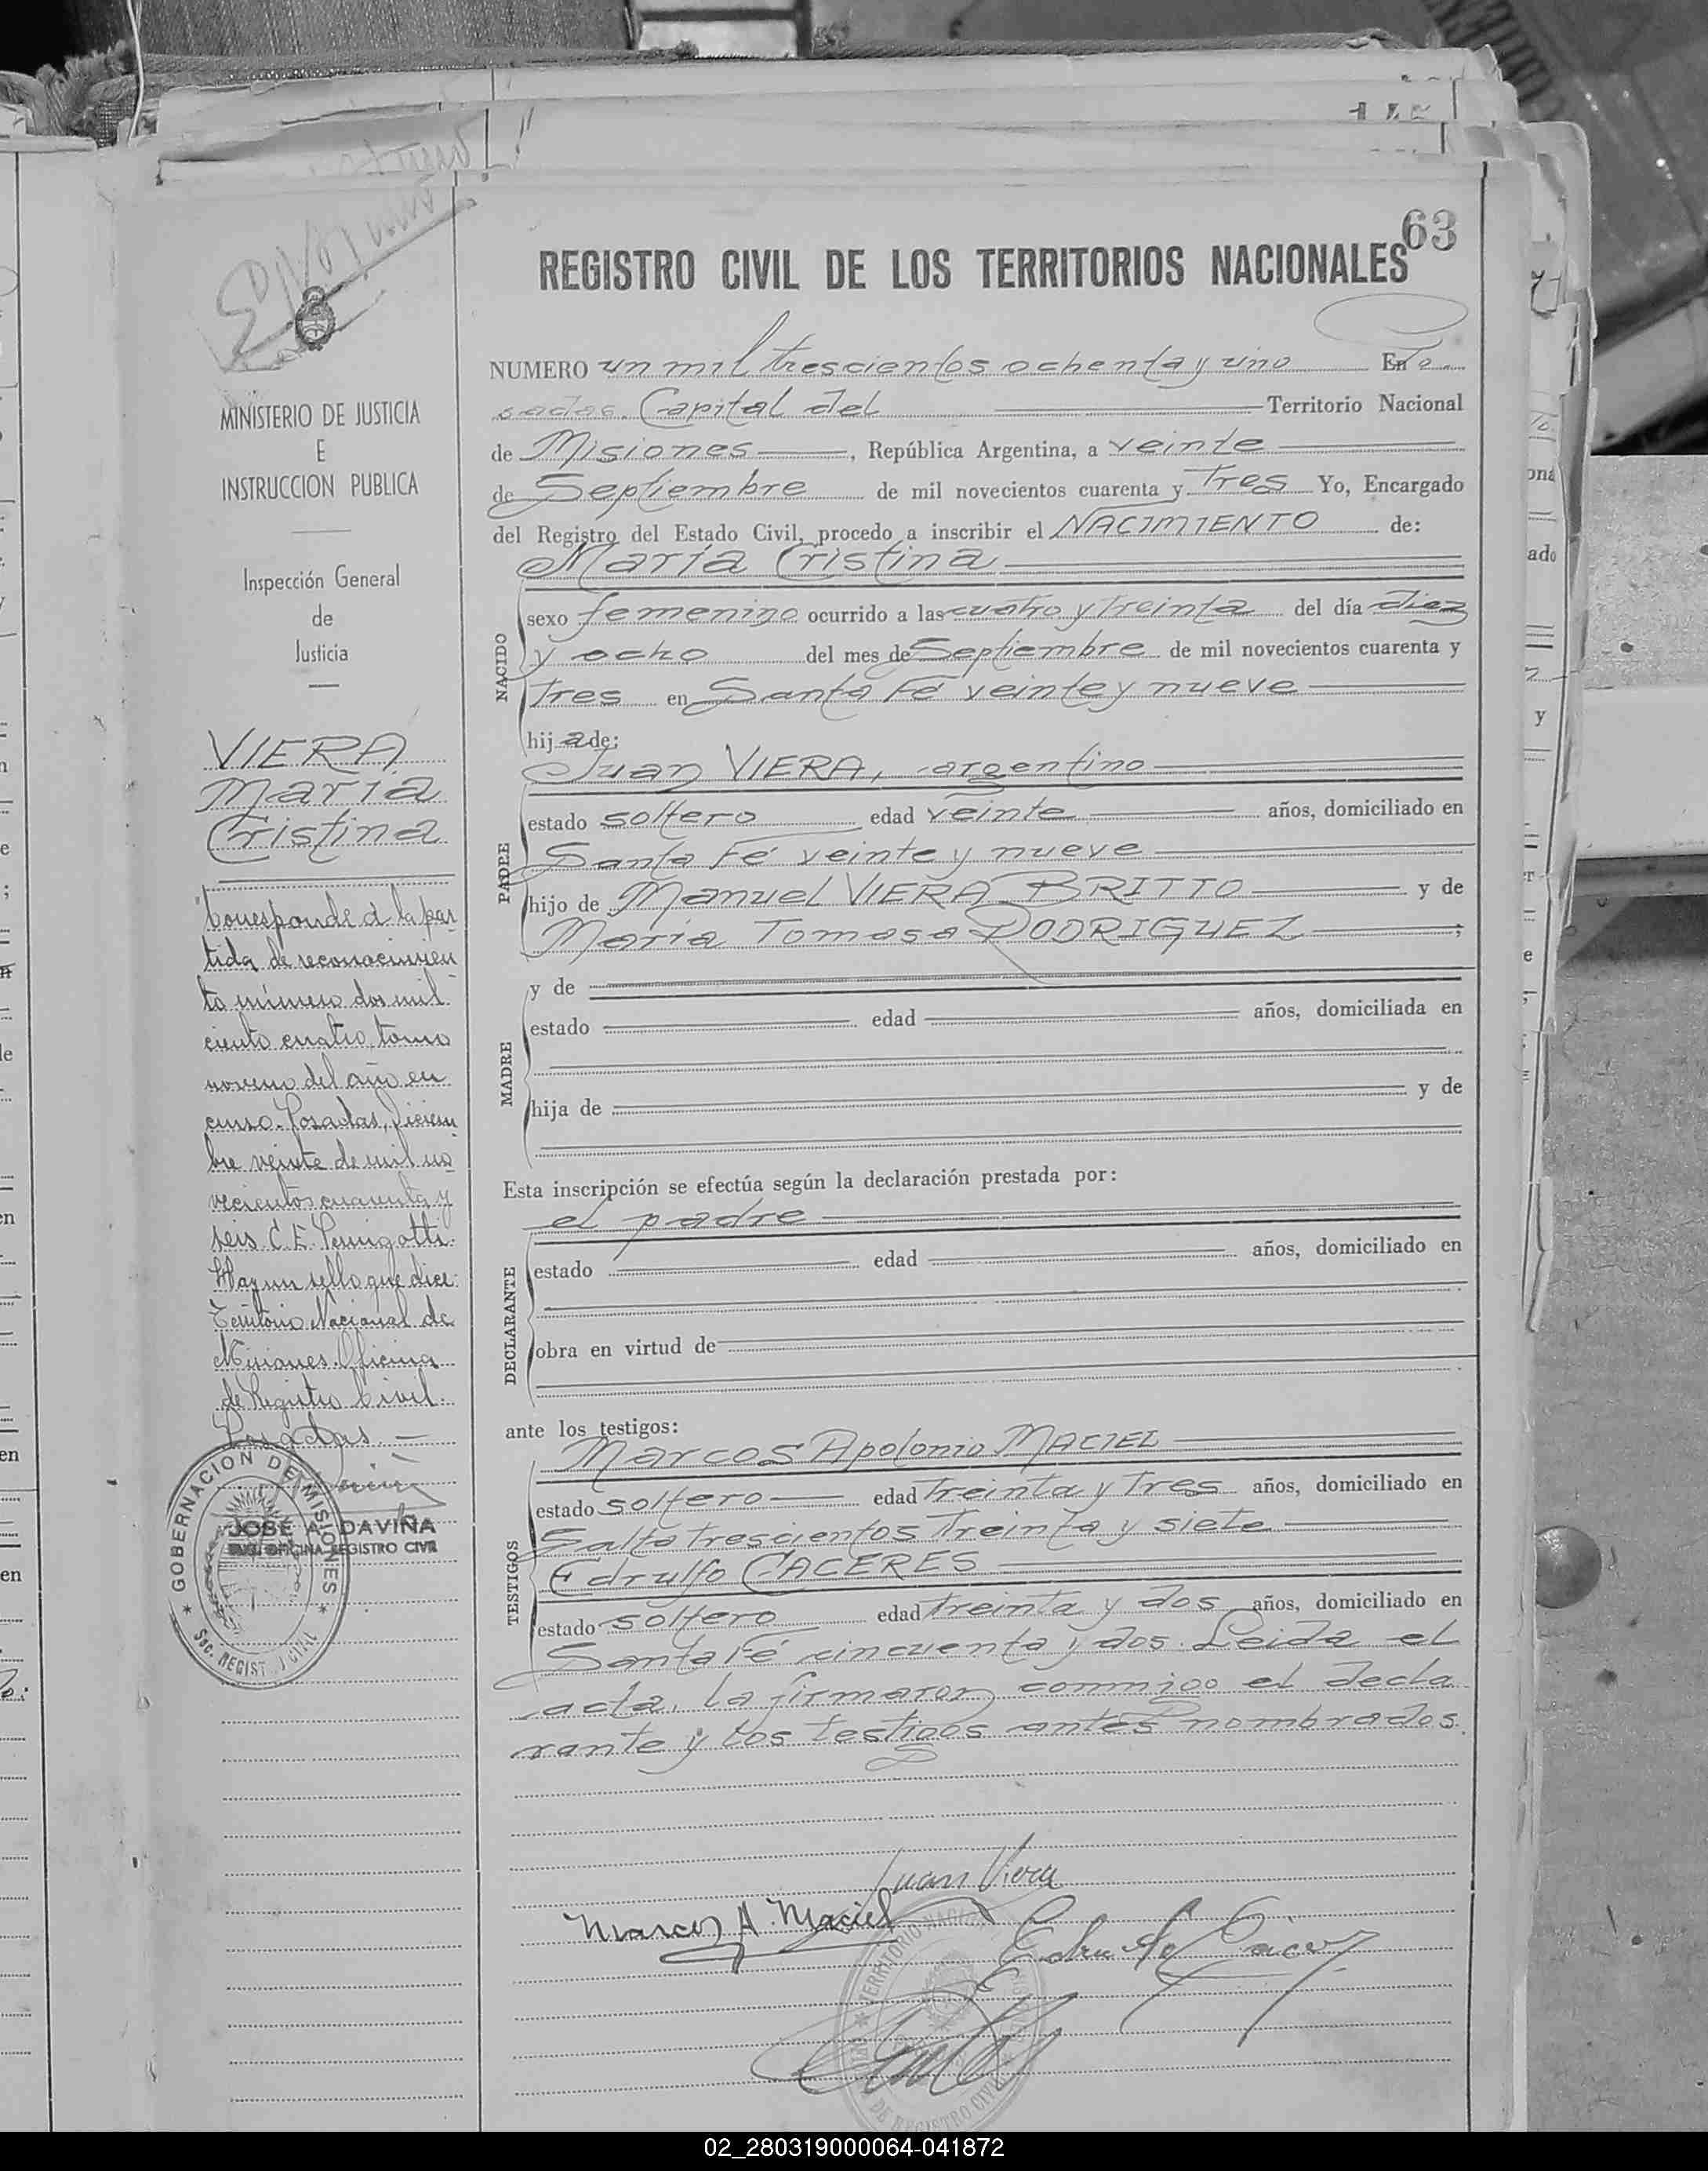 63
REGISTRO CIVIL DE LOS TERRITORIOS NACIONALES
NUMERO un mil trescientos ochenta y uno En Po
sadas. Capital del Territorio Nacional
de Misiones, República Argentina, a veinte
de Septiembre de mil novecientos cuarenta y Tres Yo, Encargado
del Registro del Estado Civil, procedo a inscribir el NACIMIENTO de:
María Cristina
NACIDO
sexo femenino ocurrido a las cuatro y treinta del día diez
y ocho del mes de Septiembre de mil novecientos cuarenta y
Tres en Santa Fé veinte y nueve
hij a de:
Juan VIERA, argentino
PADRE
estado soltero edad veinte años, domiciliado en
Santa Fé veinte y nueve
hijo de Manuel VIERA BRITTO y de
María Tomasa RODRIGUEZ;
MADRE
y de
estado edad años, domiciliada en
hija de y de
Esta inscripción se efectúa según la declaración prestada por:
el padre
DECLARANTE
estado edad años, domiciliado en
obra en virtud de
ante los testigos:
Marcos Apolonio MACIEL
TESTIGOS
estado soltero edad Treinta y Tres años, domiciliado en
Salta trescientos Treinta y siete
Edrulfo CACERES
estado soltero edad treinta y dos años, domiciliado en
Santa Fé cincuenta y dos. Leida el
acta, la firmaron conmigo el decla
rante y los testigos antes nombrados.
Juan Viera
Marcos A. Maciel
MINISTERIO DE JUSTICIA
E
INSTRUCCION PUBLICA
Inspección General
de
Justicia
VIERA
María
Cristina
"Corresponde a la par
tida de reconocimien
to número dos mil
ciento cuatro, tomo
noveno del año en
curso. Posadas, Diciem
bre veinte de mil no
vecientos cuarenta y
seis. C. E.
Hay un sello que dice:
Territorio Nacional de
Misiones. Oficina
de Registro Civil.
Posadas.
GOBERNACION DE MISIONES
JOSE A. DAVIÑA
OFICINA REGISTRO CIVIL
Sec. REGIST. CIVIL
TERRITORIO NACIONAL
DE REGISTRO CIVIL
02_280319000064-041872